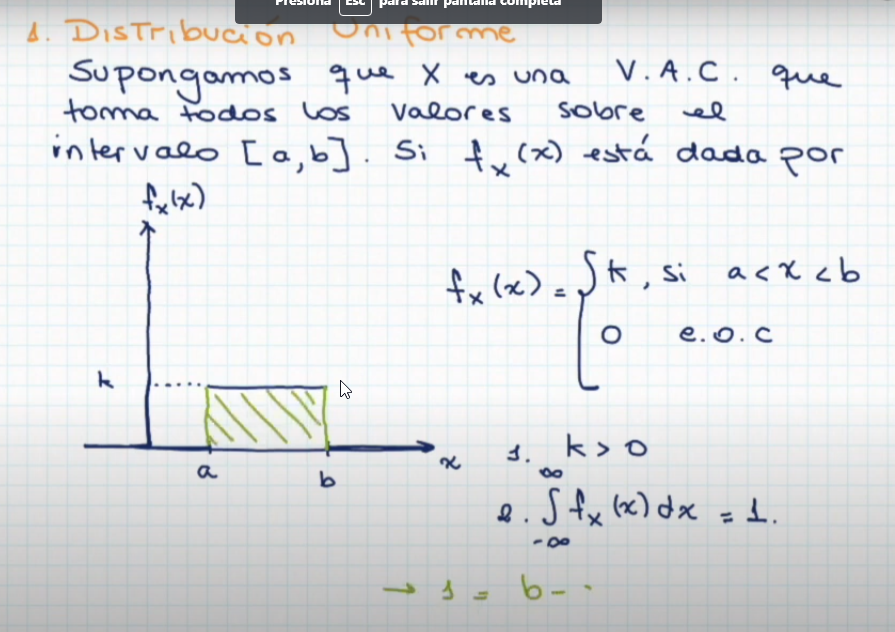 Presiona Esc para salir pantalla completa
1. Distribución Uniforme
Supongamos que X es una V.A.C. que
toma todos los valores sobre el
intervalo [a,b]. Si fₓ(x) está dada por
fₓ(x)
fₓ(x) = { k, si a < x < b
0 e.o.c
k
a
b
x
1. k > 0
2. ∫_{-∞}^{∞} fₓ(x) dx = 1.
→ 1 = b-